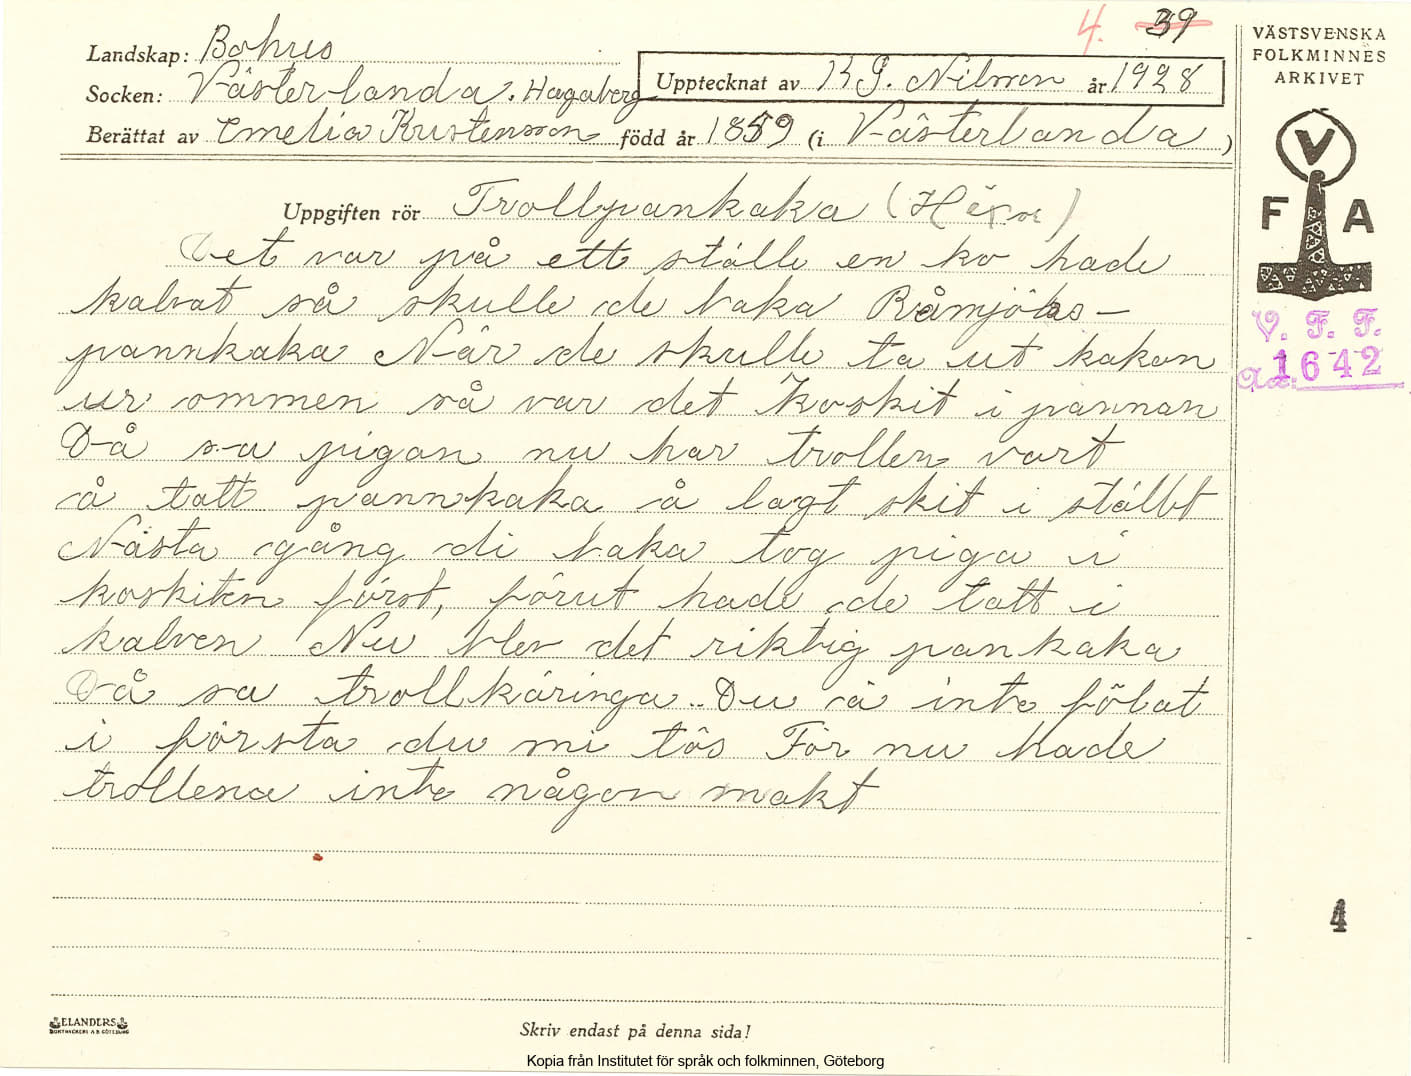 4. 39
Landskap: Bohus
Socken: Västerlanda. Hagaberg
Upptecknat av K G. Nilsson år 1928
Berättat av Emelia Kristensson född år 1859 (i Västerlanda)
Uppgiften rör Trollpankaka (Häxor)
Det var på ett ställe en ko hade
kalvat så skulle de baka Råmjölks-
pannkaka När de skulle ta ut kakan
ur ommen så var det Koskit i pannan
Då sa pigan nu har trollen vart
å tatt pannkaka å lagt skit i stället
Nästa gång di baka tog piga i
koskiten först, förut hade de tatt i
kalven Nu blev det riktig pankaka
Då sa trollkäringa. Du ä inte fölat
i första du mi tös För nu hade
trollena inte någon makt
ELANDERS
BOKTRYCKERI A.B. GÖTEBORG
Skriv endast på denna sida!
Kopia från Institutet för språk och folkminnen, Göteborg
VÄSTSVENSKA
FOLKMINNES
ARKIVET
V
F A
V. F. F.
Acc. 1642
4